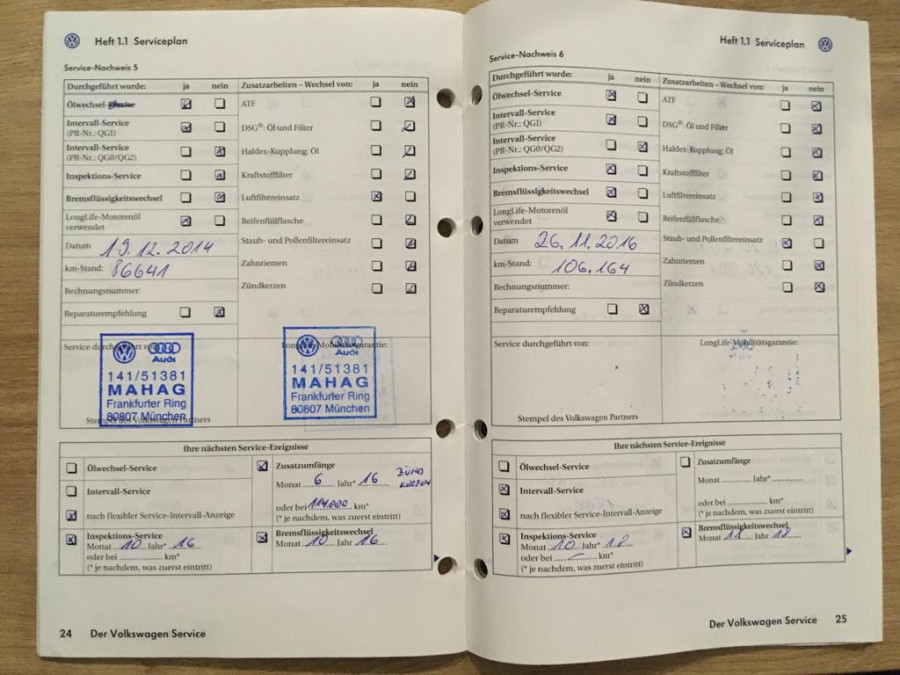 Heft 1.1 Serviceplan
Service-Nachweis 5
Durchgeführt wurde: ja nein Zusatzarbeiten – Wechsel von: ja nein
Ölwechsel-Service ATF
Intervall-Service
(PR-Nr.: QG1) DSG®: Öl und Filter
Intervall-Service
(PR-Nr.: QG0/QG2) Haldex-Kupplung: Öl
Inspektions-Service Kraftstofffilter
Bremsflüssigkeitswechsel Luftfiltereinsatz
LongLife-Motorenöl
verwendet Reifenfüllflasche
Datum 19.12.2014 Staub- und Pollenfiltereinsatz
km-Stand: 86641 Zahnriemen
Rechnungsnummer: Zündkerzen
Reparaturempfehlung
Service durchgeführt von: LongLife-Mobilitätsgarantie:
Audi
141/51381
MAHAG
Frankfurter Ring
80807 München
Stempel des Volkswagen Partners
Audi
141/51381
MAHAG
Frankfurter Ring
80807 München
Ihre nächsten Service-Ereignisse
Ölwechsel-Service
Intervall-Service
nach flexibler Service-Intervall-Anzeige
Inspektions-Service
Monat 10 Jahr* 16
oder bei km*
(* je nachdem, was zuerst eintritt)
Zusatzumfänge
Monat 6 Jahr* 16
oder bei 114.000 km*
(* je nachdem, was zuerst eintritt)
Bremsflüssigkeitswechsel
Monat 10 Jahr 16
24 Der Volkswagen Service
Heft 1.1 Serviceplan
Service-Nachweis 6
Durchgeführt wurde: ja nein Zusatzarbeiten – Wechsel von: ja nein
Ölwechsel-Service ATF
Intervall-Service
(PR-Nr.: QG1) DSG®: Öl und Filter
Intervall-Service
(PR-Nr.: QG0/QG2) Haldex-Kupplung: Öl
Inspektions-Service Kraftstofffilter
Bremsflüssigkeitswechsel Luftfiltereinsatz
LongLife-Motorenöl
verwendet Reifenfüllflasche
Datum 26.11.2016 Staub- und Pollenfiltereinsatz
km-Stand: 106.164 Zahnriemen
Rechnungsnummer: Zündkerzen
Reparaturempfehlung
Service durchgeführt von: LongLife-Mobilitätsgarantie:
Stempel des Volkswagen Partners
Ihre nächsten Service-Ereignisse
Ölwechsel-Service
Intervall-Service
nach flexibler Service-Intervall-Anzeige
Inspektions-Service
Monat 10 Jahr* 18
oder bei km*
(* je nachdem, was zuerst eintritt)
Zusatzumfänge
Monat Jahr*
oder bei km*
(* je nachdem, was zuerst eintritt)
Bremsflüssigkeitswechsel
Monat 11 Jahr 18
Der Volkswagen Service 25